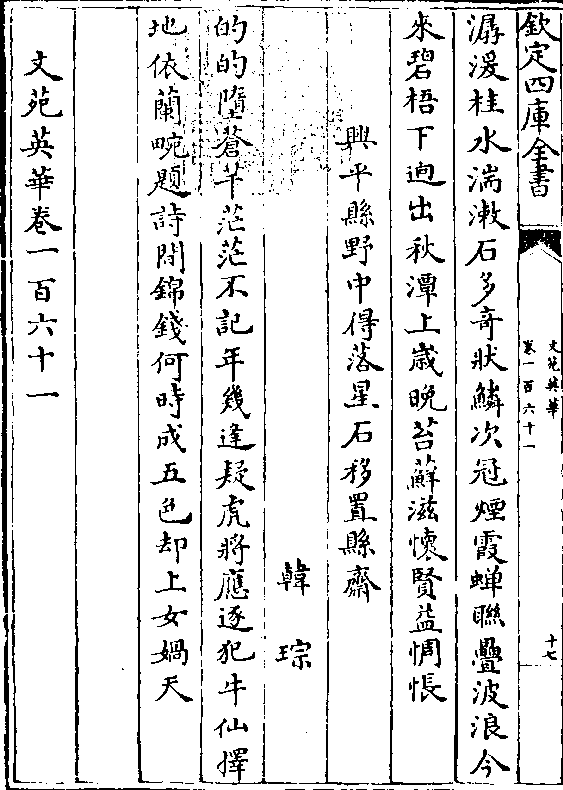 欽定四庫全書
文苑英華
卷一百六十一
十七
潺湲桂水湍漱石多奇狀鱗次冠煙霞蟬聯疊波浪今
來碧梧下迥出秋潭上歲晚苔蘚滋懷賢益惆悵
興平縣野中得落星石移置縣齋
韓琮
的的墮蒼茫茫不記年幾逢疑虎將應逐犯牛仙擇
地依蘭畹題詩間錦錢何時成五色却上女媧天
文苑英華卷一百六十一